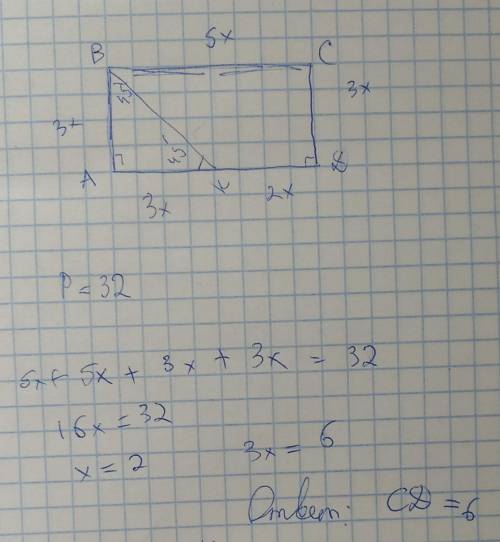 5x
B C
45°
3x 3x
45°
A K D
3x 2x
P = 32
5x + 5x + 3x + 3x = 32
16x = 32
x = 2 3x = 6
Ответ: CD = 6